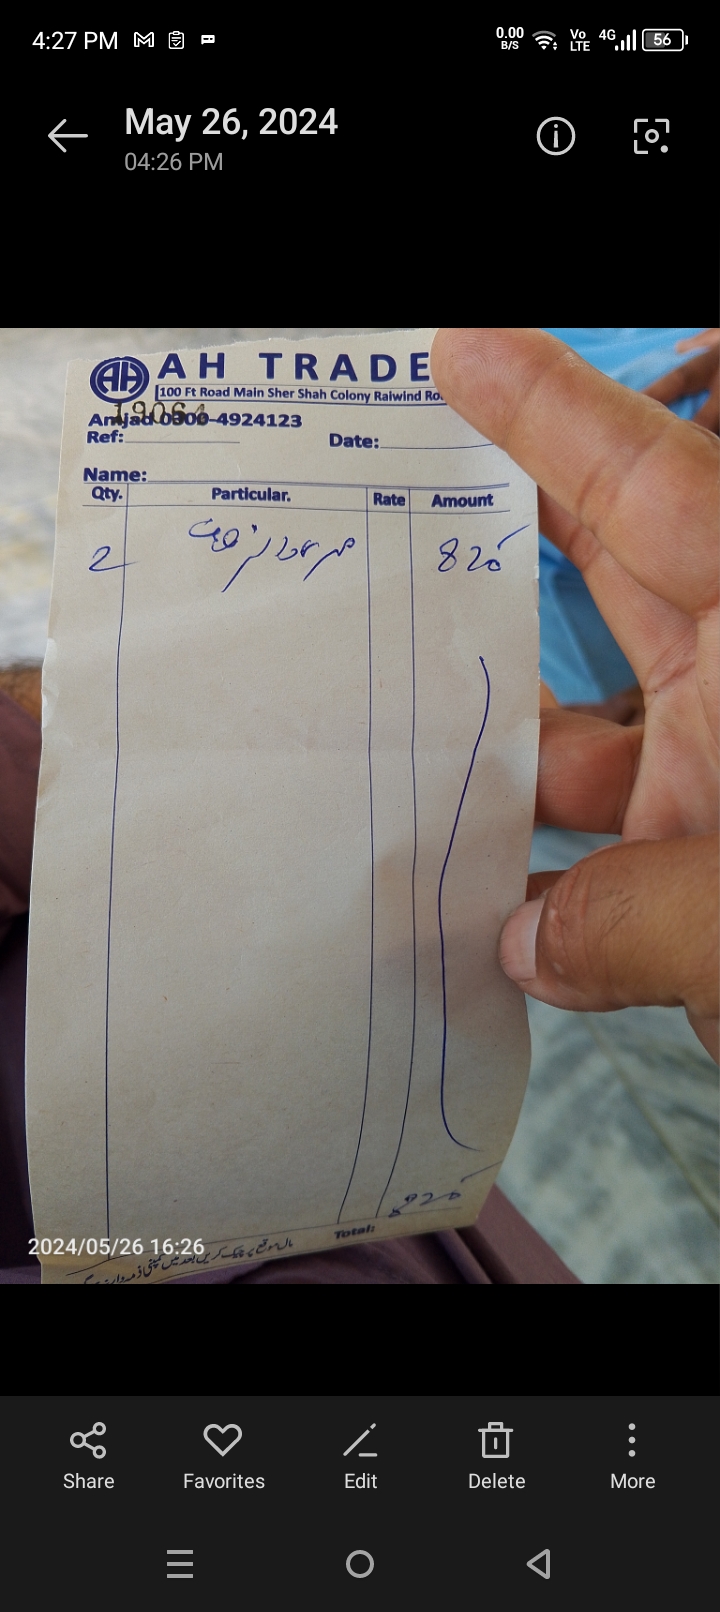 4:27 PM 0.00 B/S Vo LTE 4G 56
May 26, 2024
04:26 PM
AH AH TRADE
100 Ft Road Main Sher Shah Colony Raiwind Ro
Amjad 0300-4924123
Ref: Date:
Name:
Qty. Particular. Rate Amount
2 820
820
Total:
مال موقع پر چیک کریں بعد میں کمپنی ذمہ دار
2024/05/26 16:26
Share Favorites Edit Delete More